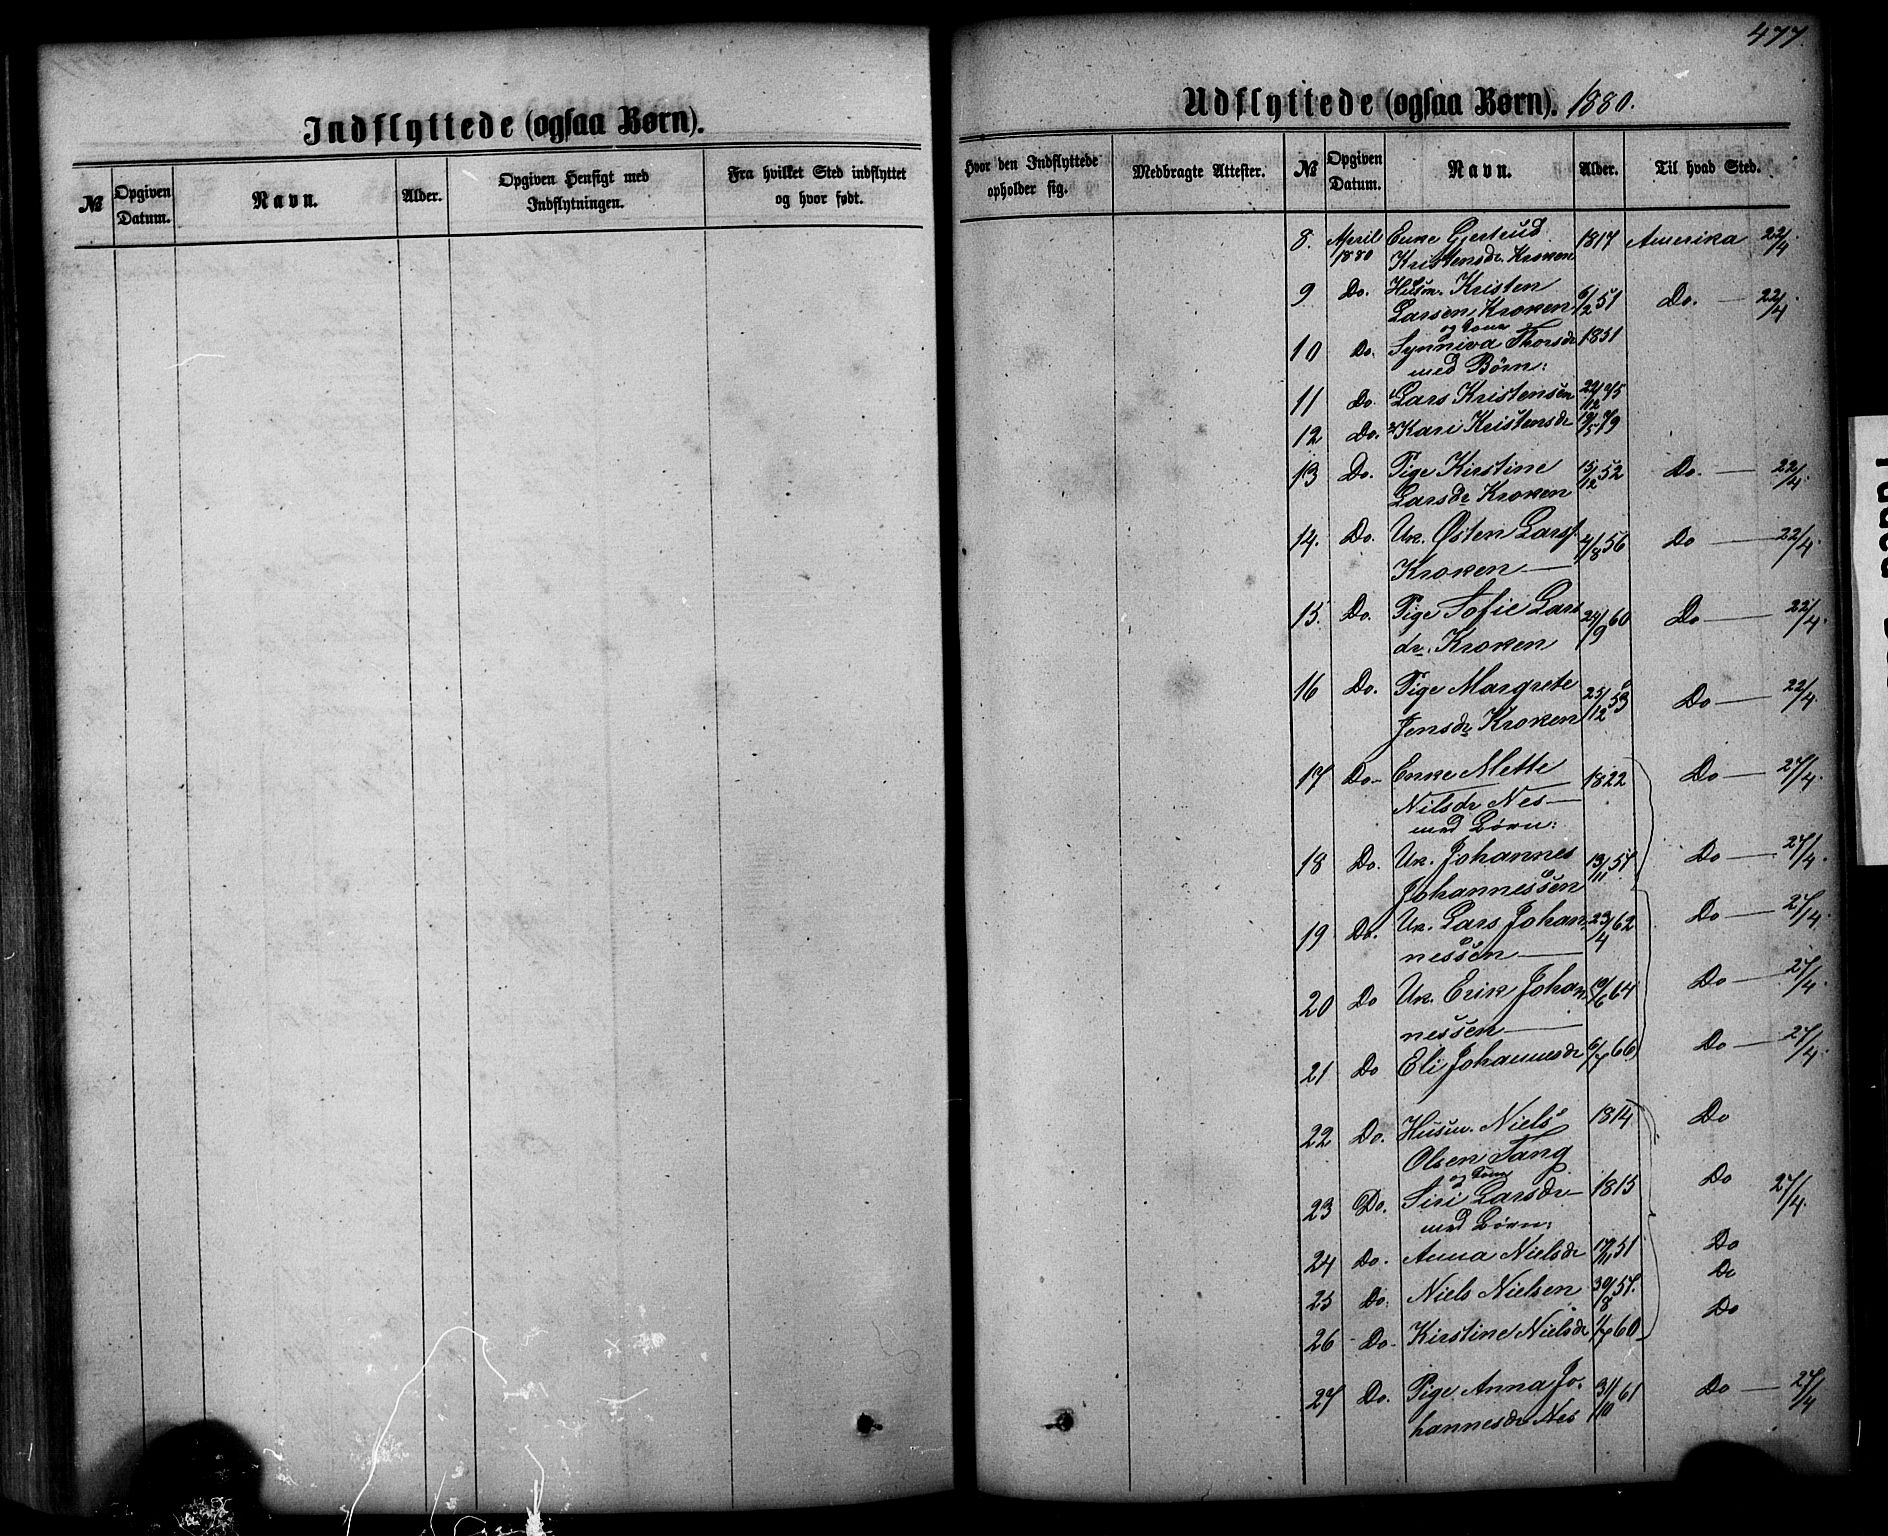 477.
Indflyttede (ogsaa Børn).
№ Opgiven Datum. Navn. Alder. Opgiven Hensigt med Indflytningen. Fra hvilket Sted indflyttet og hvor født.
Udflyttede (ogsaa Børn). 1880.
Hvor den Indflyttede opholder sig. Medbragte Attester. № Opgiven Datum. Navn. Alder. Til hvad Sted.
8. April 1880 Enke Gjertrud 1817 Amerika 22/4.
Kristensdr. Kroken
9 Do. Husm. Kristen 6/2 51 Do. — 22/4.
Larsen Kroken
og Kone
10 Do. Synniva Thorsdr 1851
med Børn:
11 Do. 1 Lars Kristensen 22/12 75
12 Do. 2 Kari Kristensdr 19/5 79
13 Do. Pige Kirstine 15/12 52 Do. — 22/4.
Larsdr Kroken
14. Do. Uk. Østen Larss. 4/8 56 Do — 22/4.
Kroken —
15. Do. Pige Sofie Lars 24/9 60 Do — 22/4.
dr. Kroken
16 Do. Pige Margrete 25/12 53 Do — 22/4.
Jensdr Kroken
17 Do- Enke Mette 1822 Do — 27/4.
Nilsdr Nes —
med Børn:
18 Do. Uk. Johannes 13/11 57 Do — 27/4.
Johannessen
19 Do. Uk. Lars Johan 23/4 62 Do — 27/4.
nessen —
20 Do Uk. Erik Johan 19/6 64 Do — 27/4.
nessen —
21 Do Eli Johannesdr 6/7 66 Do — 27/4.
22 Do. Husm. Niels 1814 Do
Olsen Tang
og Kone
23 Do. Siri Larsdr 1815 Do 27/4.
med Børn:
24 Do. Anna Nielsdr 17/11 51 Do
25 Do. Niels Nielsen 30/8 57. Do
26 - Do- Kirstine Nielsdr 1/7 60 Do
27 Do. Pige Anna Jo- 31/10 61 Do — 27/4
hannesdr Nes